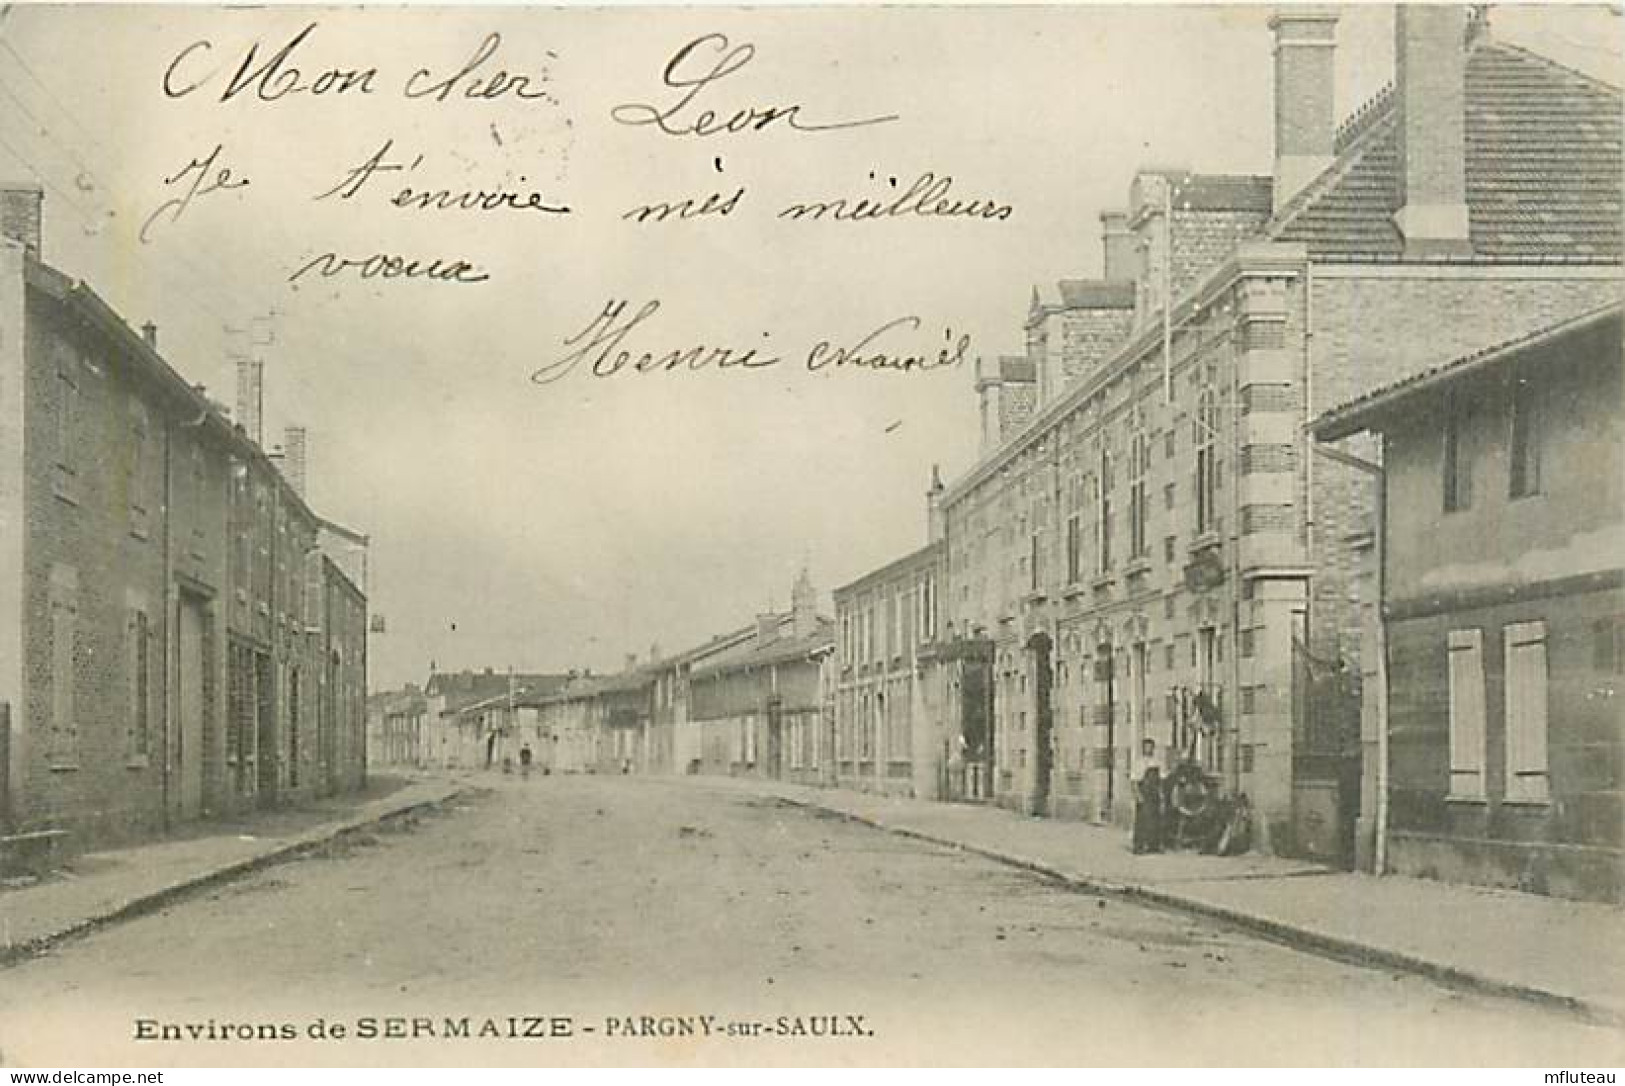 Mon cher Leon
Je t'énvoie més méilleurs
voeux
Henri
Environs de SERMAIZE - PARGNY-sur-SAULX.
www.delcampe.net
mfluteau